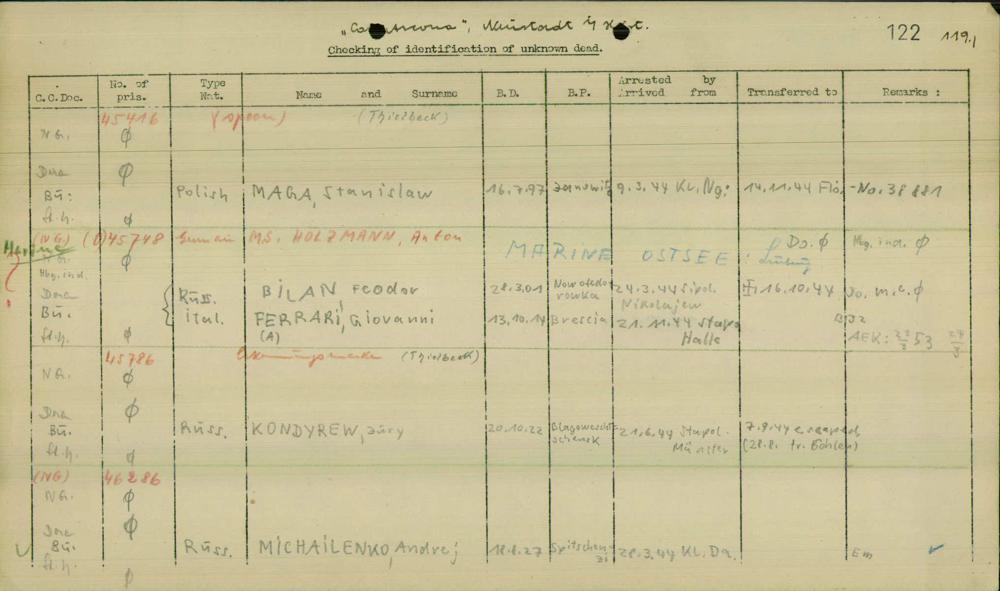 "Cap Arcona", Neustadt i/ Holst.
122 119.1
Checking of identification of unknown dead.
C.C.Doc. No. of pris. Type Nat. Name and Surname B.D. B.P. Arrested by Arrived from Transferred to Remarks :
45416 (spoon) (Thielbeck)
NG. Ø
Dora Ø
Bü: Polish MAGA, Stanislaw 16.7.97 Janowitz 9.3.44 KL.Ng: 14.11.44 Flo. -No. 38881
Ø
(NG) 45748 German MS. HOLZMANN, Anton Do. Ø Hbg. ind. Ø
Marine Ø MARINE OSTSEE :
Hbg. ind.
Dora Russ. BILAN, Feodor 28.3.01 24.3.44 Sipol. Nikolajew 16.10.44 Do. m.c. Ø
Bü. ital. FERRARI, Giovanni 13.10.14 Brescia 21.11.44 Stapo Halle BJ2
Ø (A) AEK: 53
45786 Erkennungsmarke (Thielbeck)
NG. Ø
Dora Ø
Bü. Russ. KONDYREW, Jury 20.10.22 Blagoweschtschensk 21.6.44 Stapol. Münster 7.9.44 escaped
Ø (28.8. tr. Böhlen)
(NG) 46286
NG. Ø
Dora Ø
Bü. Russ. MICHAILENKO, Andrej 18.8.27 28.3.44 KL.Da. Em
Ø